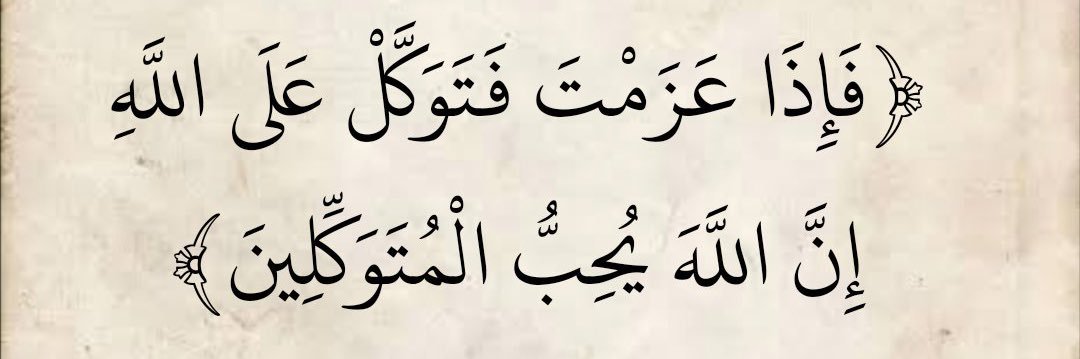 ﴿فَإِذَا عَزَمْتَ فَتَوَكَّلْ عَلَى اللَّهِ
إِنَّ اللَّهَ يُحِبُّ الْمُتَوَكِّلِينَ﴾